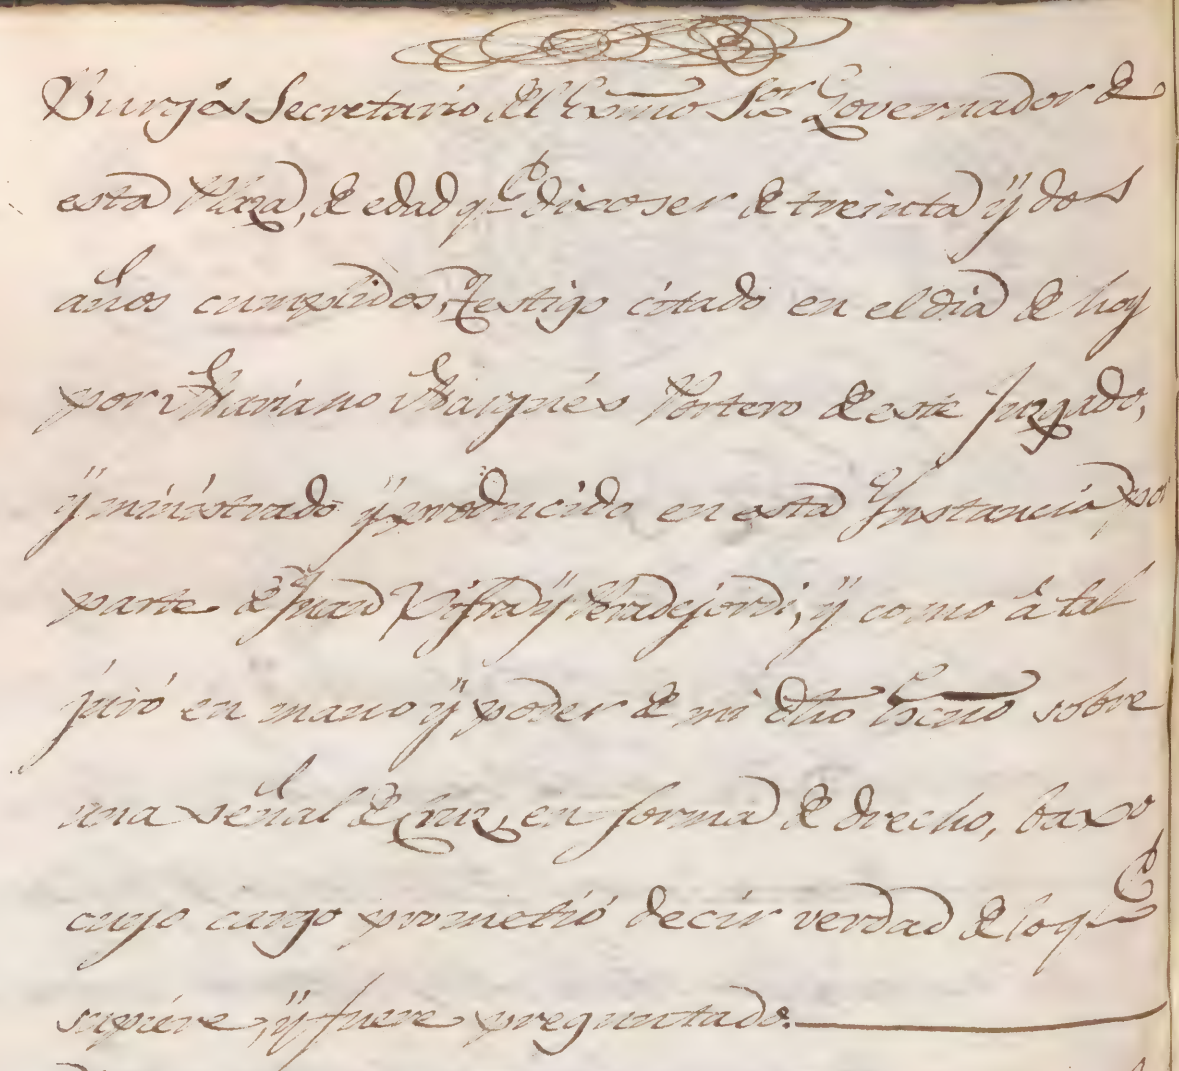 Burgés Secretario del Exmo Sor Governador de
esta Plaza, de edad qe dixo ser de treinta ÿ dos
años cumplidos, Testigo citado en el dia de hoy
por Mariano Marqués Portero de este Juzgado,
ÿ ministrado ÿ producido en esta Instancia por
parte de Juan Xifra ÿ Peradejordi, ÿ como â tal
juró en mano ÿ poder de mi dho Esno sobre
una señal de Cruz, en forma de drecho, baxo
cuyo cargo prometió decir verdad de lo qe
supiere, ÿ fuere preguntado.